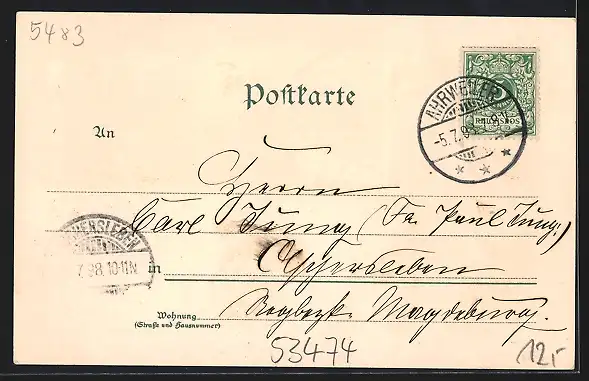 5483
Postkarte
AHRWEILER
-5.7.98
REICHSPOST
An
Herrn
Carl Jung (Fa. Paul Jung)
OSCHERSLEBEN
7.98.10-11N
in Oschersleben
Regbezk. Magdeburg.
Wohnung
(Straße und Hausnummer)
53474
12,-